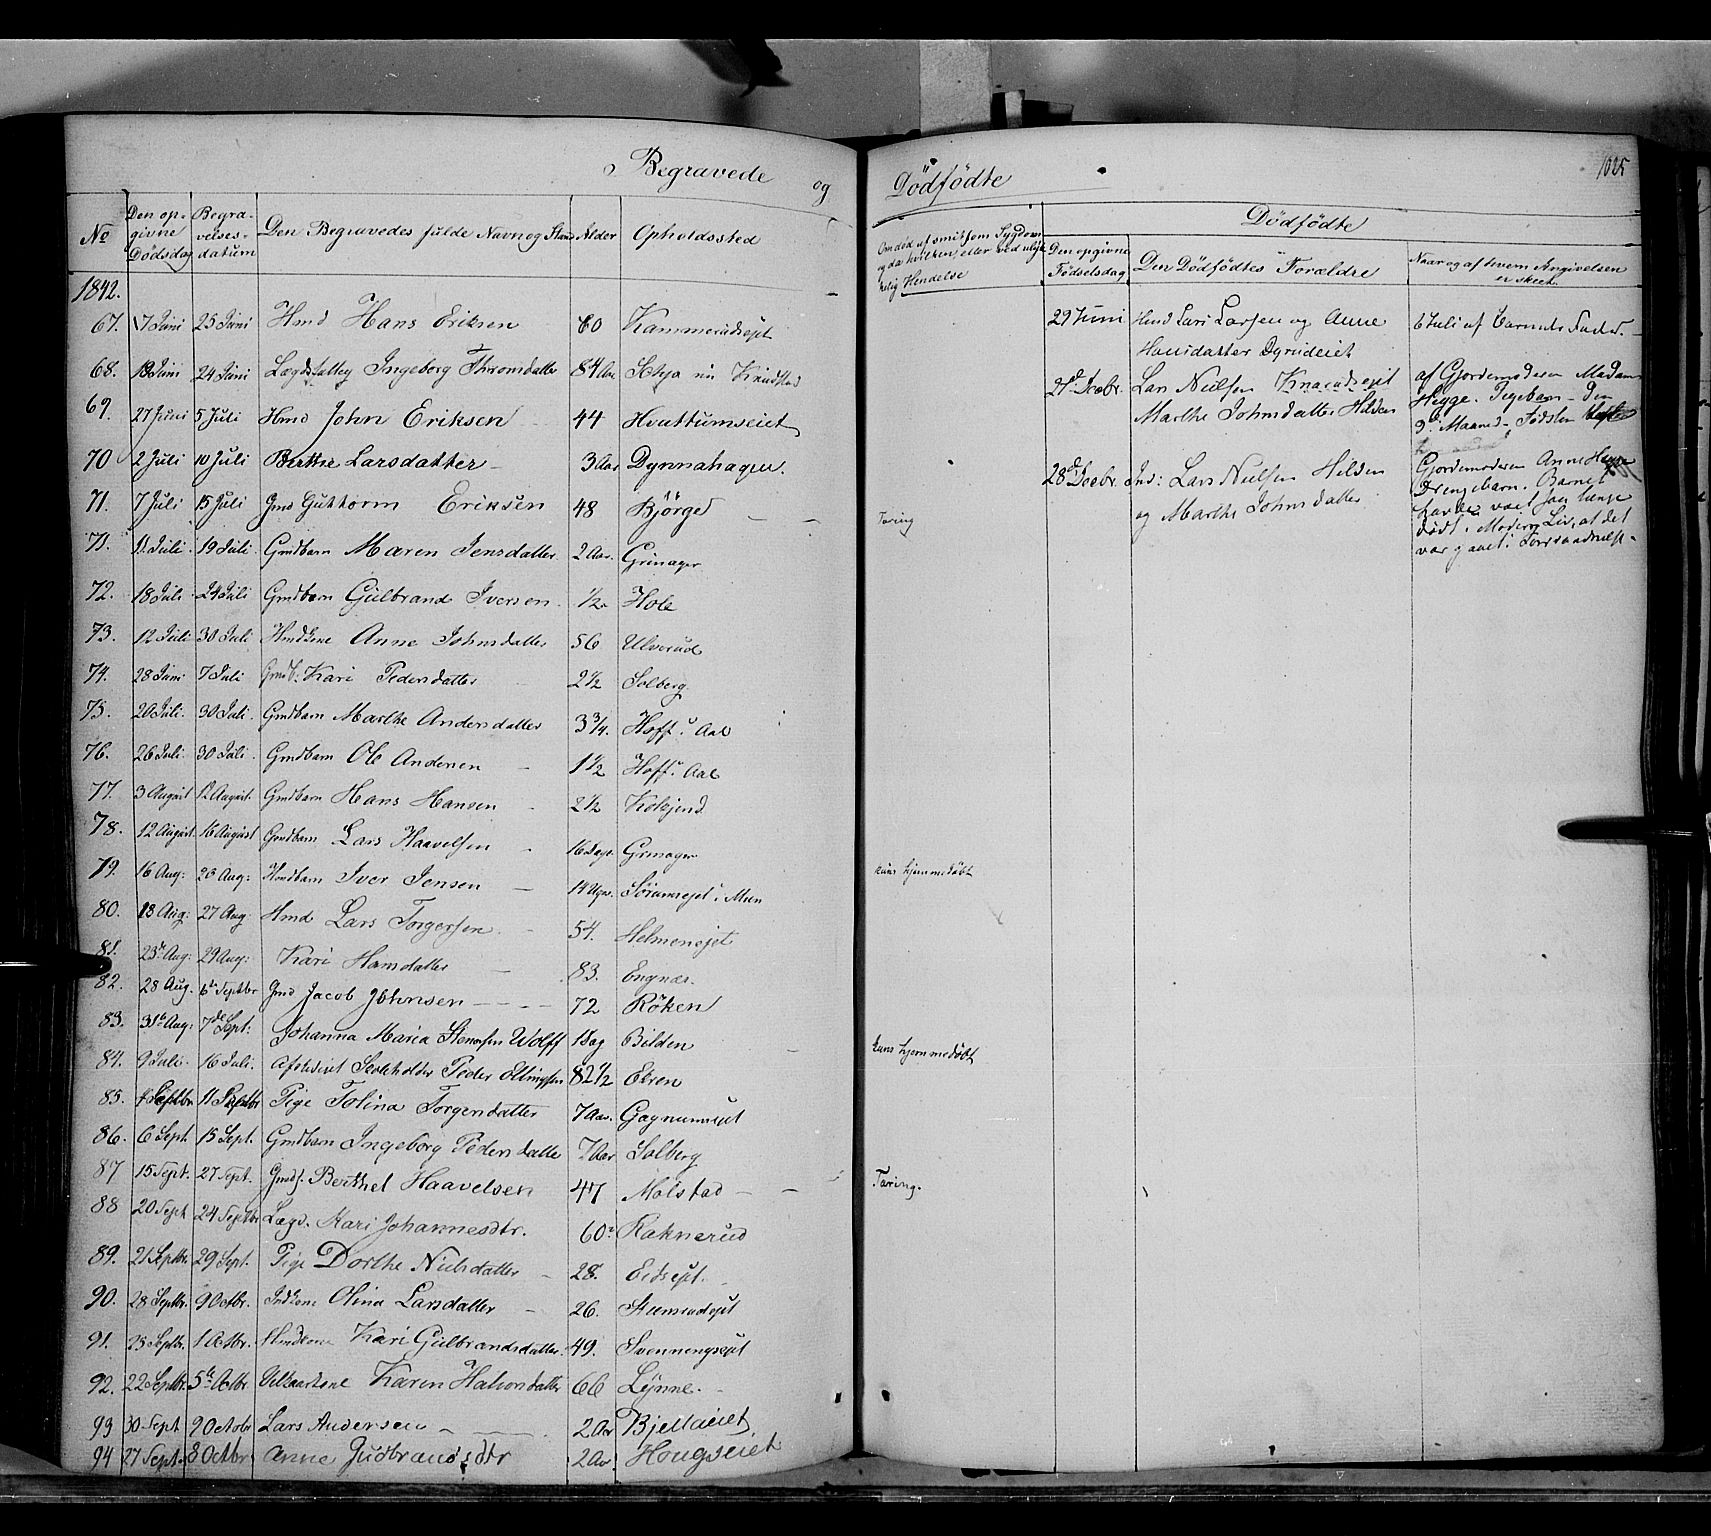 Begravede og Dödfödte 1025
No
Den opgivne Dødsdag
Begravelsesdatum
Den Begravedes fulde Navn og Stand
Alder
Opholdssted
Om död af smitsom Sygdom og da hvilken, eller ved ulykkelig Hendelse
Dödfödte
Den opgivne Födselsdag
Den Dödfödtes Forældre
Naar og af hvem Angivelsen er skeet.
1842.
67. 17 Juni 25 Juni Hmd Hans Eriksen 60 Kammerudsejet
68. 18 Juni 24 Juni Ingeborg Thronsdatter 84 Aar
69. 27 Juni 5 Juli Hmd John Eriksen 44 Hvattumseiet
70 2 Juli 10 Juli Berthe Larsdatter 3 Aar Dynnahagen.
71. 7 Juli 15 Juli Gmd Guttorm Eriksen 48 Björge Tæring
71. 11 Juli 19 Juli Gmdbarn Maren Jensdatter 2 Aar. Grinager
72. 18 Juli 24 Juli Gmdbarn Gulbrand Iversen 1/2 Hole
73. 12 Juli 30 Juli Hmdkone Anne Johnsdatter 56 Ulverud
74. 28 Juni 7 Juli Gmdb. Kari Pedersdatter 2 1/2 Solberg
75. 20 Juli 30 Juli Gmdbarn Marthe Andersdatter 3 3/4 Hoff i Aal
76. 26 Juli 30 Juli Gmdbarn Ole Andersen 1 1/2 Hoff i Aal
77. 3 August 12 August Gmdbarn Hans Hansen 2 1/2
78. 12 August 16 August Gmdbarn Lars Haavelsen 16 Dage Grinager
79. 16 Aug: 26 Aug: Hmdbarn Iver Jensen 14 Uger kuns hjemmedöbt
80. 18 Aug: 27 Aug: Hmd Lars Torgersen 54. Helmenejet
81. 23de Aug: 29 Aug: Kari Hansdatter 83. Engnæs.
82. 28 Aug. 6te Septbr Gmd Jacob Johnsen 72 Röken
83. 31te Aug: 7de Sept: Johanna Maria Stensen Wolff 1 Dag Bilden kuns hjemmedöbt
84. 9 Juli 16 Juli Afskediget Skoleholder Peder Ellingsen 82 1/2 Ekren
85. 4 Septbr 11 Septbr Pige Tolina Torgersdatter 7 Aar. Gagnumsejet
86. 6 Sept 15 Sept. Gmdbarn Ingeborg Pedersdatter 7 Aar Solberg
87 15 Sept. 27 Sept. Berthel Haavelsen 47 Molstad Tæring.
88 20 Sept 24 Septbr Lægd. Kari Johannesdtr. 60 Raknerud
89. 21 Septbr. 29 Sept. Pige Dorthe Nielsdatter 28. Eidsejet
90. 28 Septbr. 9 Octbr. Indkone Olina Larsdatter 26.
91. 25 Septbr. 1 Octbr. Hmdkone Kari Gulbrandsdatter 49. Svenningsejet
92. 22 Septbr. 5te Octbr Karen Halvorsdatter 66 Lynne.
93 30 Sept 9 Octobr Lars Andersen 2 Aar Bjellaeiet
94 27 Sept. 8 Octbr Anne Gudbrandsdtr 2 Aar Hougseiet
29 Juni Hmd Lars Larsen og Anne
Hansdatter Dynnaeiet
6 Juli af Barnets Fader.
27de Decbr. Lars Nielsen
Marthe Johnsdatter Hilden
af Gjordemoderen Madam
Hegge. Pigebarn. Den
9de Maaned. Fødslen
28de Decbr. Ind: Lars Nielsen Hilden
og Marthe Johnsdatter
Gjordemoderen Anne
Drengebarn. Barnet
havde vært saa længe
dödt i Moders Liv, at det
var gaaet i Forraadnelse.